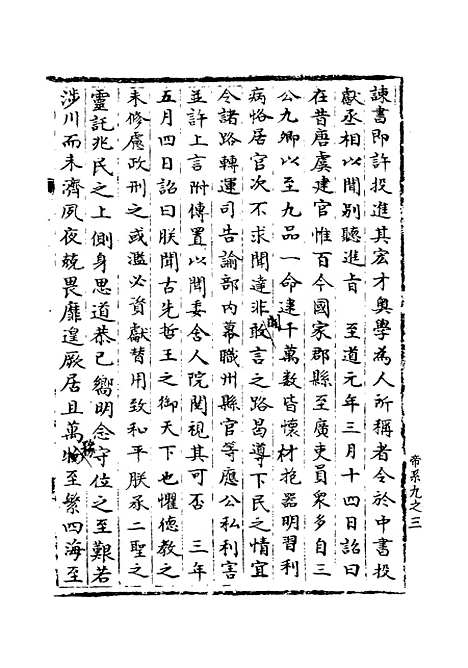 諫書即許投進其宏才奧學為人所稱者令於中書投
獻丞相以聞别聽進旨　至道元年三月十四日詔曰
在昔唐虞建官惟百今國家郡縣至廣吏員衆多自三
公九卿以至九品一命逮千萬數皆懷材抱器明習利
病恪居官次不求聞達非敢言之路曷導下民之情宜
開
令諸路轉運司告諭部内幕職州縣官等應公私利害
並許上言附傳置以聞委舍人院閱視其可否　三年
五月四日詔曰朕聞古先哲王之御天下也懼德教之
未修慮政刑之或濫必資獻替用致和平朕承二聖之
靈託兆民之上側身思道恭己嚮明念守位之至艱若
涉川而未濟夙夜兢畏靡遑厥居且萬物至繁四海至
務
帝系九之三